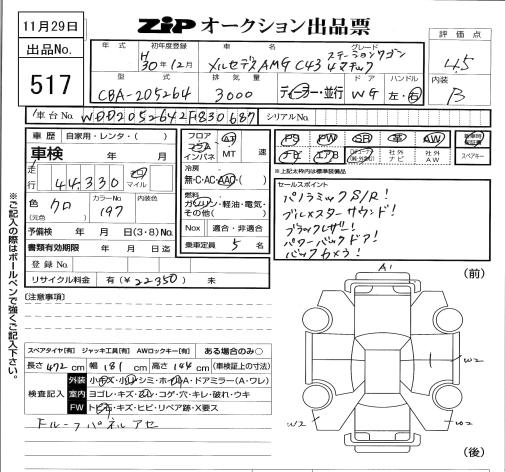 11月29日
ZIP オークション出品票
出品No.
517
年式
初年度登録
車名
グレード
評価点
H30年12月
メルセデスAMG C43 ステーションワゴン 4マチック
4.5
型式
排気量
ドア
ハンドル
内装
CBA-205264
3000
ディーラー・並行
WG
左・右
B
車台No.
WDD2052642F830687
シリアルNo.
車歴
自家用・レンタ・( )
車検
年 月
走行
44,330
マイル
色
(元色)
クロ
カラーNo.
197
内装色
予備検 年 月 日(3・8)No.
書類有効期限 年 月 日迄
登録No.
リサイクル料金
有(¥22350)未
フロア
コラム
インパネ
AT
MT
速
冷房
無・C・AC・AAC・( )
燃料
ガソリン・軽油・電気・
その他( )
Nox
適合・非適合
乗車定員
5名
PS
PW
SR
革
AW
新車時保証書
ナビ
エアB
社外
ナビ
社外
AW
スペアキー
※上記太枠内は標準装備品
セールスポイント
パノラミックS/R!
ブルメスターサウンド!
ブラックレザー!
パワーバックドア!
バックカメラ!
※ご記入の際はボールペンで強くご記入下さい。
[注意事項]
スペアタイヤ[有] ジャッキ工具[有] AWロックキー[有] ある場合のみ○
長さ472cm 幅181cm 高さ144cm (車検証上の寸法)
検査記入
外装
小キズ・小凹・シミ・ホイールA・ドアミラー(A・ワレ)
室内
ヨゴレ・キズ・スレ・コゲ・穴・キレ・破れ・ウキ
FW
トビ石・キズ・ヒビ・リペア跡・X要ス
ルーフパネルアセ
(前)
A1
W2
W2
W2
(後)